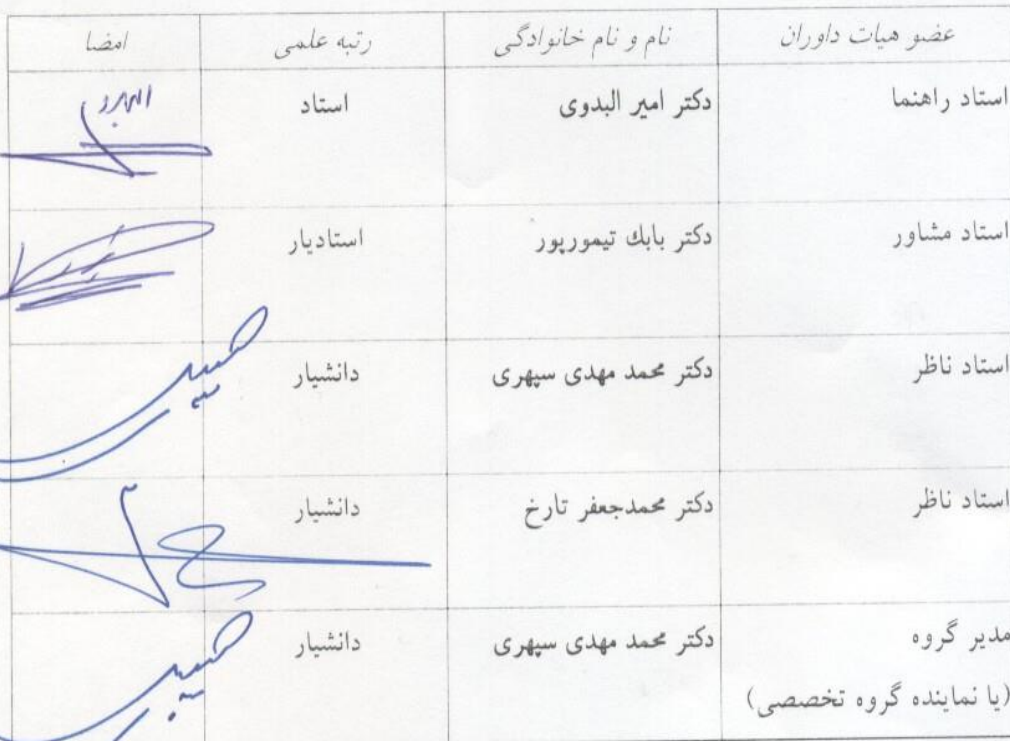 عضو هیات داوران نام و نام خانوادگی رتبه علمی امضا
استاد راهنما دکتر امیر البدوی استاد
استاد مشاور دکتر بابك تیمورپور استادیار
استاد ناظر دکتر محمد مهدی سپهری دانشیار
استاد ناظر دکتر محمدجعفر تارخ دانشیار
مدیر گروه دکتر محمد مهدی سپهری دانشیار
(یا نماینده گروه تخصصی)